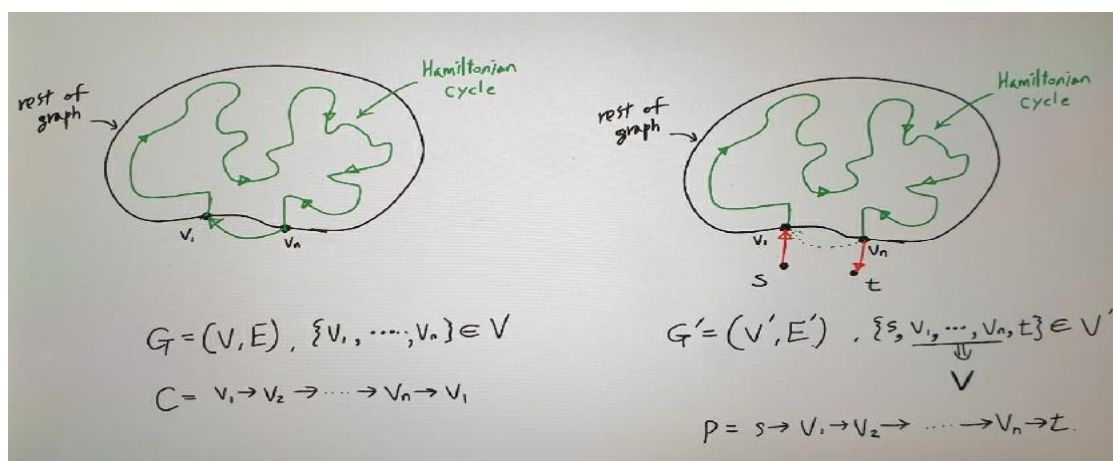 rest of
graph
Hamiltonian
cycle
V₁
Vₙ
G = (V, E) , {V₁, ....., Vₙ} ∈ V
C = V₁ → V₂ → ..... → Vₙ → V₁
rest of
graph
Hamiltonian
cycle
V₁
Vₙ
S
t
G' = (V', E') , {s, V₁, ..., Vₙ, t} ∈ V'
⇓
V
P = s → V₁ → V₂ → ...... → Vₙ → t.